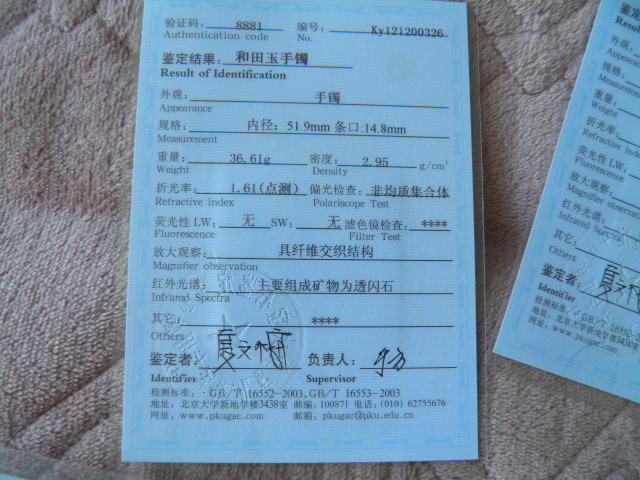 验证码： 8881 编号： Ky121200326
Authentication code No.
鉴定结果： 和田玉手镯
Result of Identification
外观： 手镯
Appearance
规格： 内径：51.9mm 条口:14.8mm
Measurement
重量： 36.61g 密度： 2.95 g/cm³
Weight Density
折光率： 1.61(点测) 偏光检查： 非均质集合体
Refractive index Polariscope Test
荧光性 LW： 无 SW： 无 滤色镜检查： ****
Fluorescence Filter Test
放大观察： 具纤维交织结构
Magnifier observation
红外光谱： 主要组成矿物为透闪石
Infrared Spectra
其它： ****
Others
鉴定者： 负责人：
Identifier Supervisor
检测标准： GB/T 16552-2003, GB/T 16553-2003
地址：北京大学新地学楼3438室 邮编：100871 电话：(010) 62755676
网址：www.pkugac.com 邮箱：pkugac@pku.edu.cn
外观：
Appearance
规格：
Measurement
重量：
Weight
折光率：
Refractive
荧光性 LW
Fluorescence
放大观察：
Magnifier observati
红外光谱：
Infrared Spectra
其它：
Others
鉴定者：
Identifier
检测标准： GB/T 16552
地址：北京大学新地学楼3438
网址：www.pkugac.com